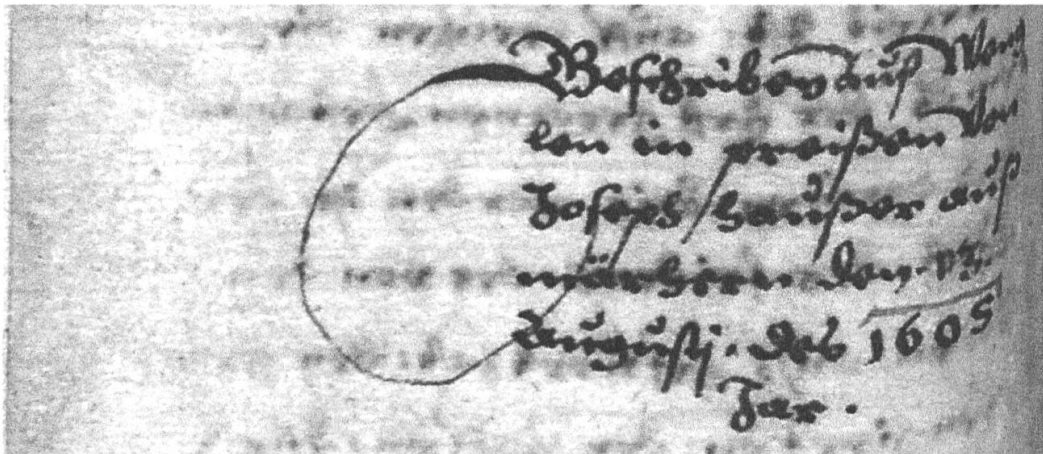 Beschriben auß Weng
len in preißen Von
Joseph haußer auß
märhern den
Augustj. des 1605
Jar.